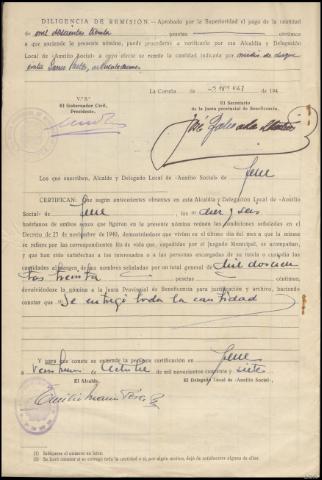 DILIGENCIA DE REMISIÓN.—Aprobado por la Superioridad el pago de la cantidad
de mil doscientas treinta pesetas céntimos
a que asciende la presente nómina, puede procederse a verificarlo por esa Alcaldía y Delegación
Local de «Auxilio Social» a cuyo efecto se remite la cantidad indicada por medio de cheque
La Coruña, 194
V.º B.º
El Gobernador Civil,
Presidente,
El Secretario
de la Junta provincial de Beneficencia,
José
Los que suscriben, Alcalde y Delegado Local de «Auxilio Social» de Jene
CERTIFICAN: Que según antecedentes obrantes en esta Alcaldía y Delegación Local de «Auxilio
Social» de Jene los diez y seis
huérfanos de ambos sexos que figuran en la presente nómina reúnen las condiciones señaladas en el
Decreto de 23 de noviembre de 1940, demostrándose que vivían en el último día del mes a que la misma
se refiere por las correspondientes fés de vida que, expedidas por el Juzgado Municipal, se acompañan,
y que han sido satisfechas a los interesados o a las personas encargadas de su tutela o custodia las
cantidades al margen de sus nombres señaladas por un total general de mil doscien
tas treinta pesetas céntimos,
devolviéndose la nómina a la Junta Provincial de Beneficencia para justificación y archivo, haciendo
constar que Se entregó toda la cantidad
Y para que conste se extiende la presente certificación en Jene
a de Octubre de mil novecientos cuarenta y siete
El Alcalde,
El Delegado Local de «Auxilio Social»,
(1) Indíquese el número en letra.
(2) Se hará constar si se entregó toda la cantidad o si, por algún motivo, dejó de satisfacerse alguna de ellas.